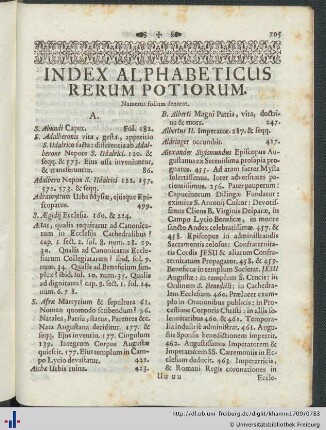 705
INDEX ALPHABETICUS
RERUM POTIORUM.
Numerus folium denotat.
A.
S. Abundi Caput. Fol. 182.
S. Adalberonis vita, gesta, appetitio
S. Udalrico facta: dissertatio ab Adal-
berone Nepote S. Udalrici. 120. &
seqq. & 575. Ejus ossa inveniuntur,
& transferuntur. 86.
Adalbero Nepos S. Udalrici 122. 157.
572. 573. & seqq.
Adramytium Urbs Mysiæ, ejusque Epi-
scopatus. 499.
S. Ægidij Ecclesia. 160. & 224.
Ætas, qualis requiratur ad Canonica-
tum in Ecclesiis Cathedralibus?
cap. 1. sect. 2. fol. 8. num. 28. 29.
30. Qualis ad Canonicatus Eccle-
siarum Collegiatarum? ibid. fol. 9.
num. 34. Qualis ad Beneficium sim-
plex? ibid. fol. 10. num. 35. Qualis
ad dignitates? cap. 9. sect. 1. fol. 24.
num. 6. 7. & 8.
S. Afræ Martyrium & sepultura 61.
Nomen quomodo scribendum? 96.
Natales, Patria, status, Parentes &c.
Nata Augustana dicitur. 177. &
seqq. Ejus inventio. 177. Cingulum
139. Integrum Corpus Augustæ
quiescit. 177. Ejus templum in Cam-
po Lycio devastatur. 421.
Aicha Urbis ruina. 423.
B. Alberti Magni Patria, vita, doctri-
na & mors. 247.
Albertus II. Imperator. 287. & seqq.
Aldringer occumbit. 427.
Alexander Sigismundus Episcopus Au-
gustanus ex Serenissima prosapia pro-
gnatus. 455. Ad aram sacræ Mysta
Infertissimus. Inter adversitates pa-
tientissimus. 256. Pater pauperum:
Capucinorum Dilingæ Fundator:
eximius S. Antonij Cultor: Devotis-
simus Cliens B. Virginis Deiparæ, in
Campo Lycio Beneficæ, in morte
sancto Andeo celebratissimæ. 457. &
458. Episcopus in administrandis
Sacramentis zelosus: Confraternita-
tis Cordis JESU & aliarum Confra-
ternitatum Propagator. 458. & 459.
Beneficus in templum Societat. JESU
Augustæ: in templum S. Crucis: in
Ordinem S. Benedicti: in Cathedra-
lem Ecclesiam 460. Præluxet exem-
plo in Orationibus publicis: in Pro-
cessione Corporis Christi: in aliis so-
lennitatibus 460. & 461. Tempora-
lia industriè administrat. 461. Augu-
stis Sponsis benedictionem impertit.
462. Augustissimum Imperatorem &
Imperatricem SS. Carremoniis in Ec-
clesiam deducit. 463. Imperatricis,
& Romani Regis coronationes in
Uu uu
Eccle-
http://dl.ub.uni-freiburg.de/diglit/khamm1709/0783
© Universitätsbibliothek Freiburg